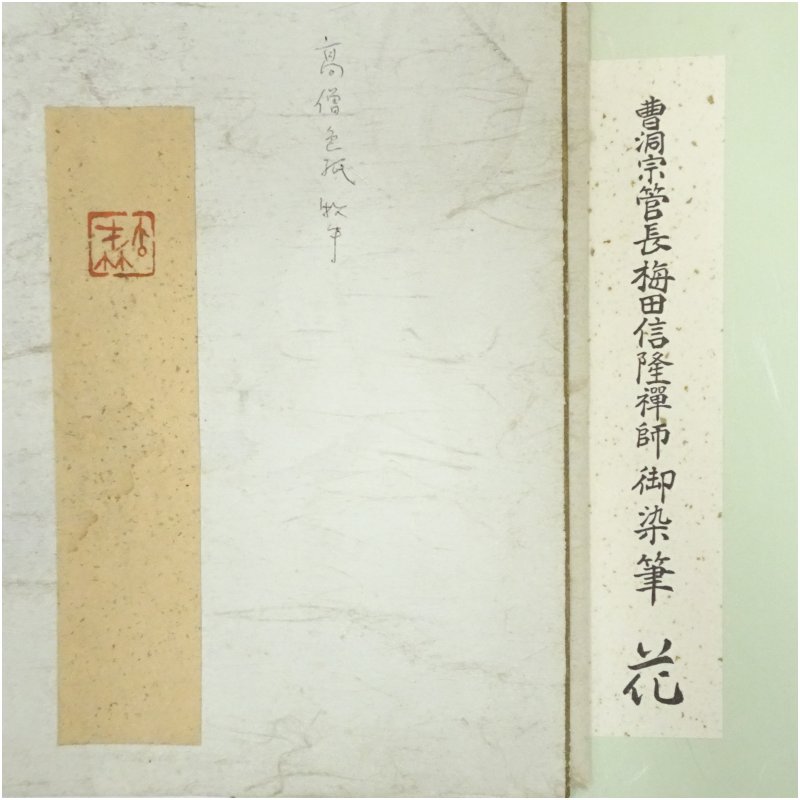 曹洞宗管長梅田信隆禪師 御染筆 花
高僧色紙 牧牛